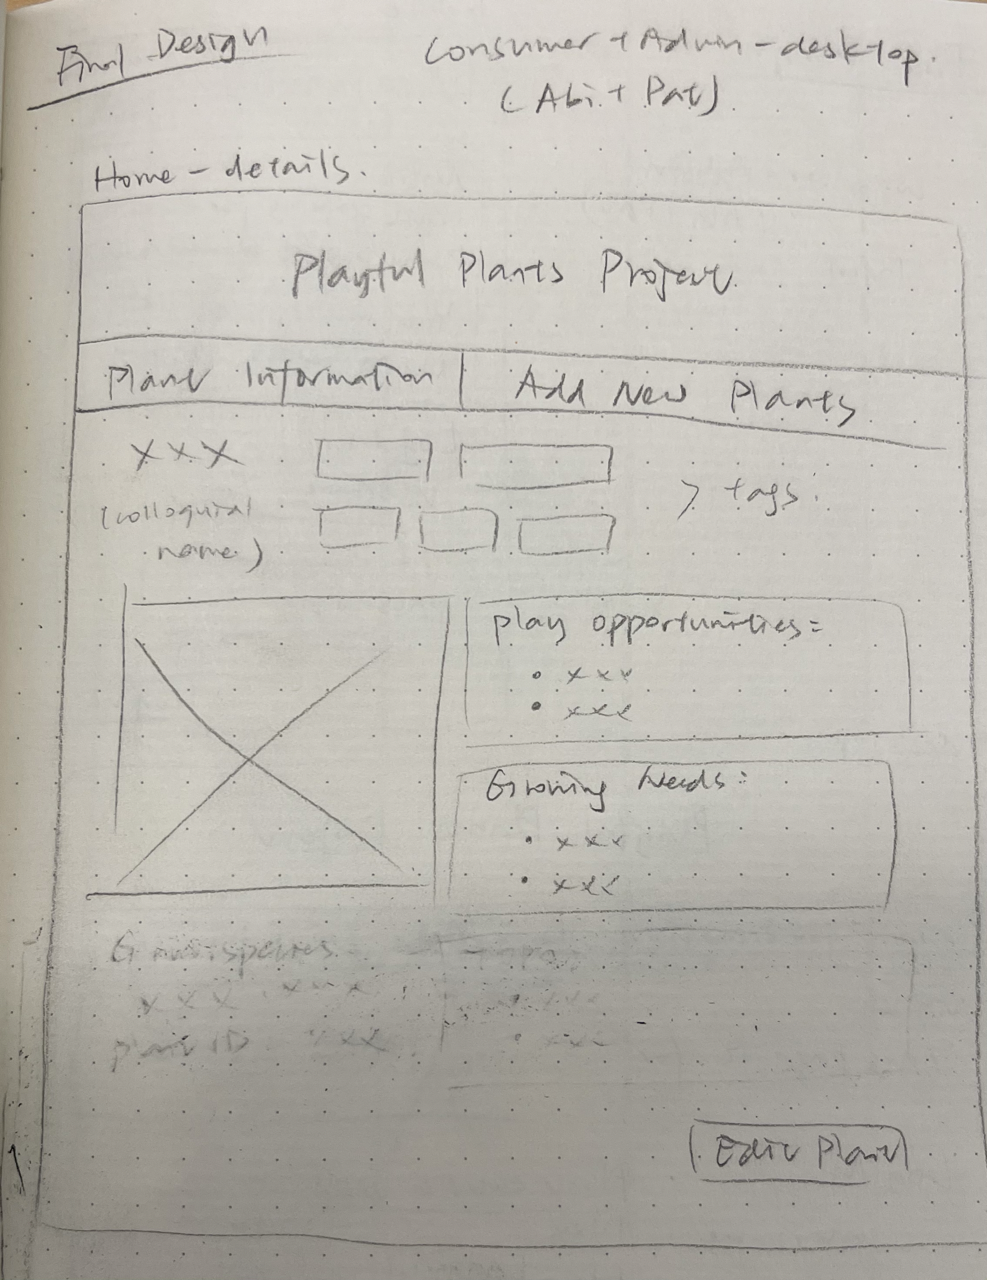 Final Design
Consumer + Admin - desktop.
(Abi + Pat)
Home - details.
Playful Plants Project
Plant Information
Add New Plants
xxx
(colloquial
name)
> tags.
play opportunities:
• xxx
• xxx
Growing Needs:
• xxx
• xxx
xxx xxx
plant ID xxx
• xxx
• xxx
Edit Plant